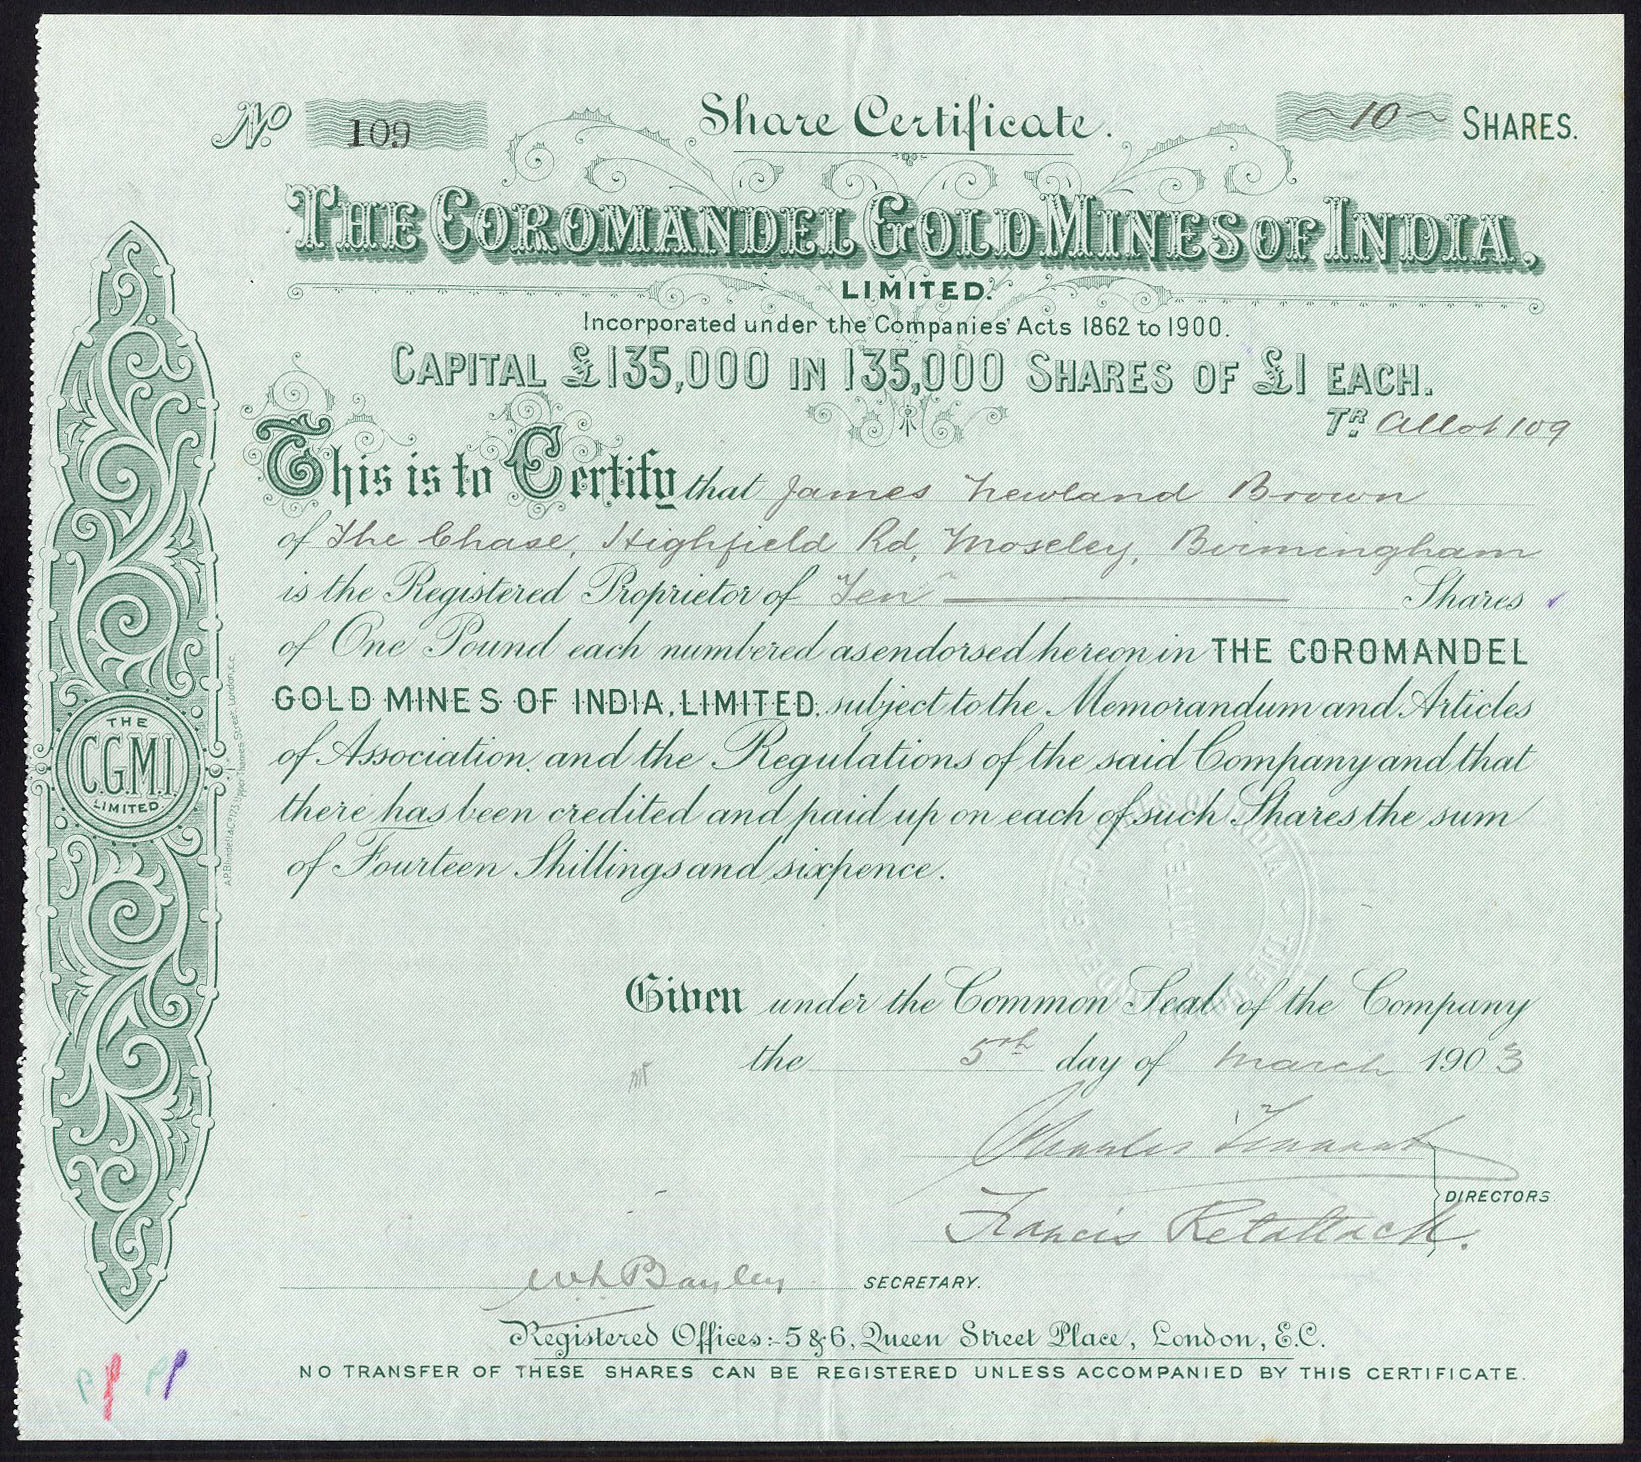 No. 109
Share Certificate.
~10~ SHARES.
THE COROMANDEL GOLD MINES OF INDIA,
LIMITED.
Incorporated under the Companies' Acts 1862 to 1900.
CAPITAL £135,000 IN 135,000 SHARES OF £1 EACH.
TR. Allot 109
This is to Certify that James Newland Brown
of The Chase, Highfield Rd, Moseley, Birmingham
is the Registered Proprietor of Ten Shares
of One Pound each numbered as endorsed hereon in THE COROMANDEL
GOLD MINES OF INDIA, LIMITED, subject to the Memorandum and Articles
of Association, and the Regulations of the said Company and that
there has been credited and paid up on each of such Shares the sum
of Fourteen Shillings and sixpence.
THE
C.G.M.I.
LIMITED.
Given under the Common Seal of the Company
the 5th day of March 1903
Charles Tennant
Francis Retallack.
DIRECTORS
Bayley SECRETARY.
Registered Offices:- 5 & 6, Queen Street Place, London, E.C.
NO TRANSFER OF THESE SHARES CAN BE REGISTERED UNLESS ACCOMPANIED BY THIS CERTIFICATE.